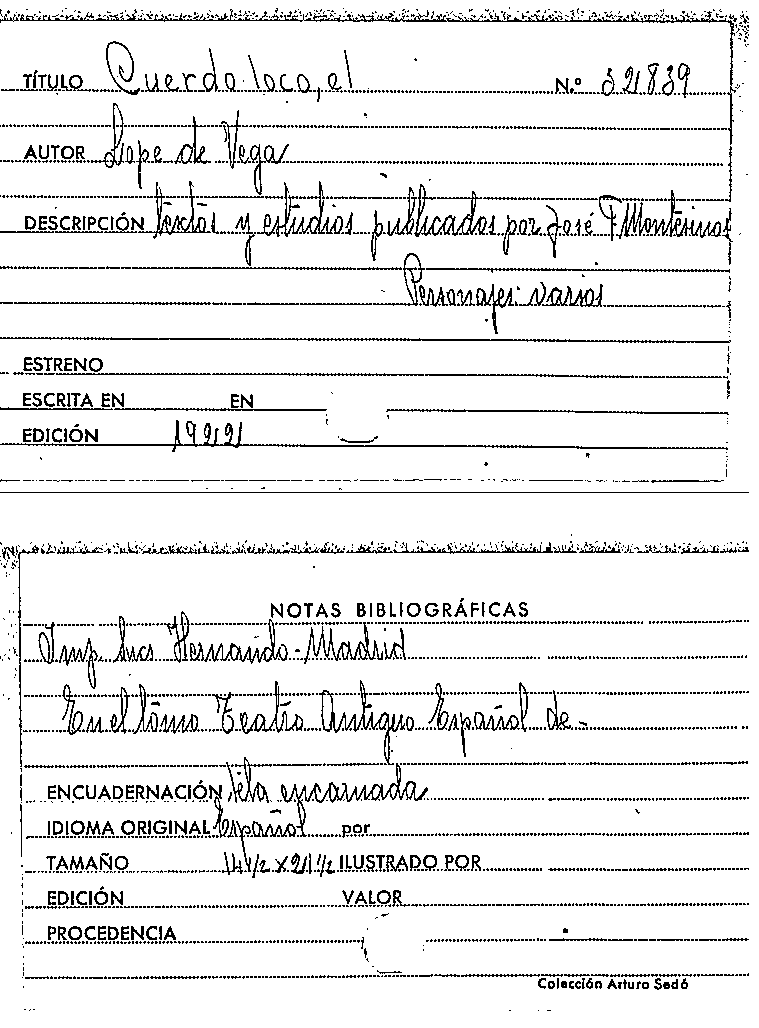 TÍTULO Cuerdo loco, el N.º 321839
AUTOR Lope de Vega
DESCRIPCIÓN textos y estudios publicados por José F Montesinos
Personajes: varios
ESTRENO
ESCRITA EN EN
EDICIÓN 1922
NOTAS BIBLIOGRÁFICAS
Imp Sucs Hernando-Madrid
En el tomo Teatro Antiguo Español de-
ENCUADERNACIÓN tela encarnada
IDIOMA ORIGINAL Español por
TAMAÑO 14 1/2 X 21 1/2 ILUSTRADO POR
EDICIÓN VALOR
PROCEDENCIA
Colección Arturo Sedó